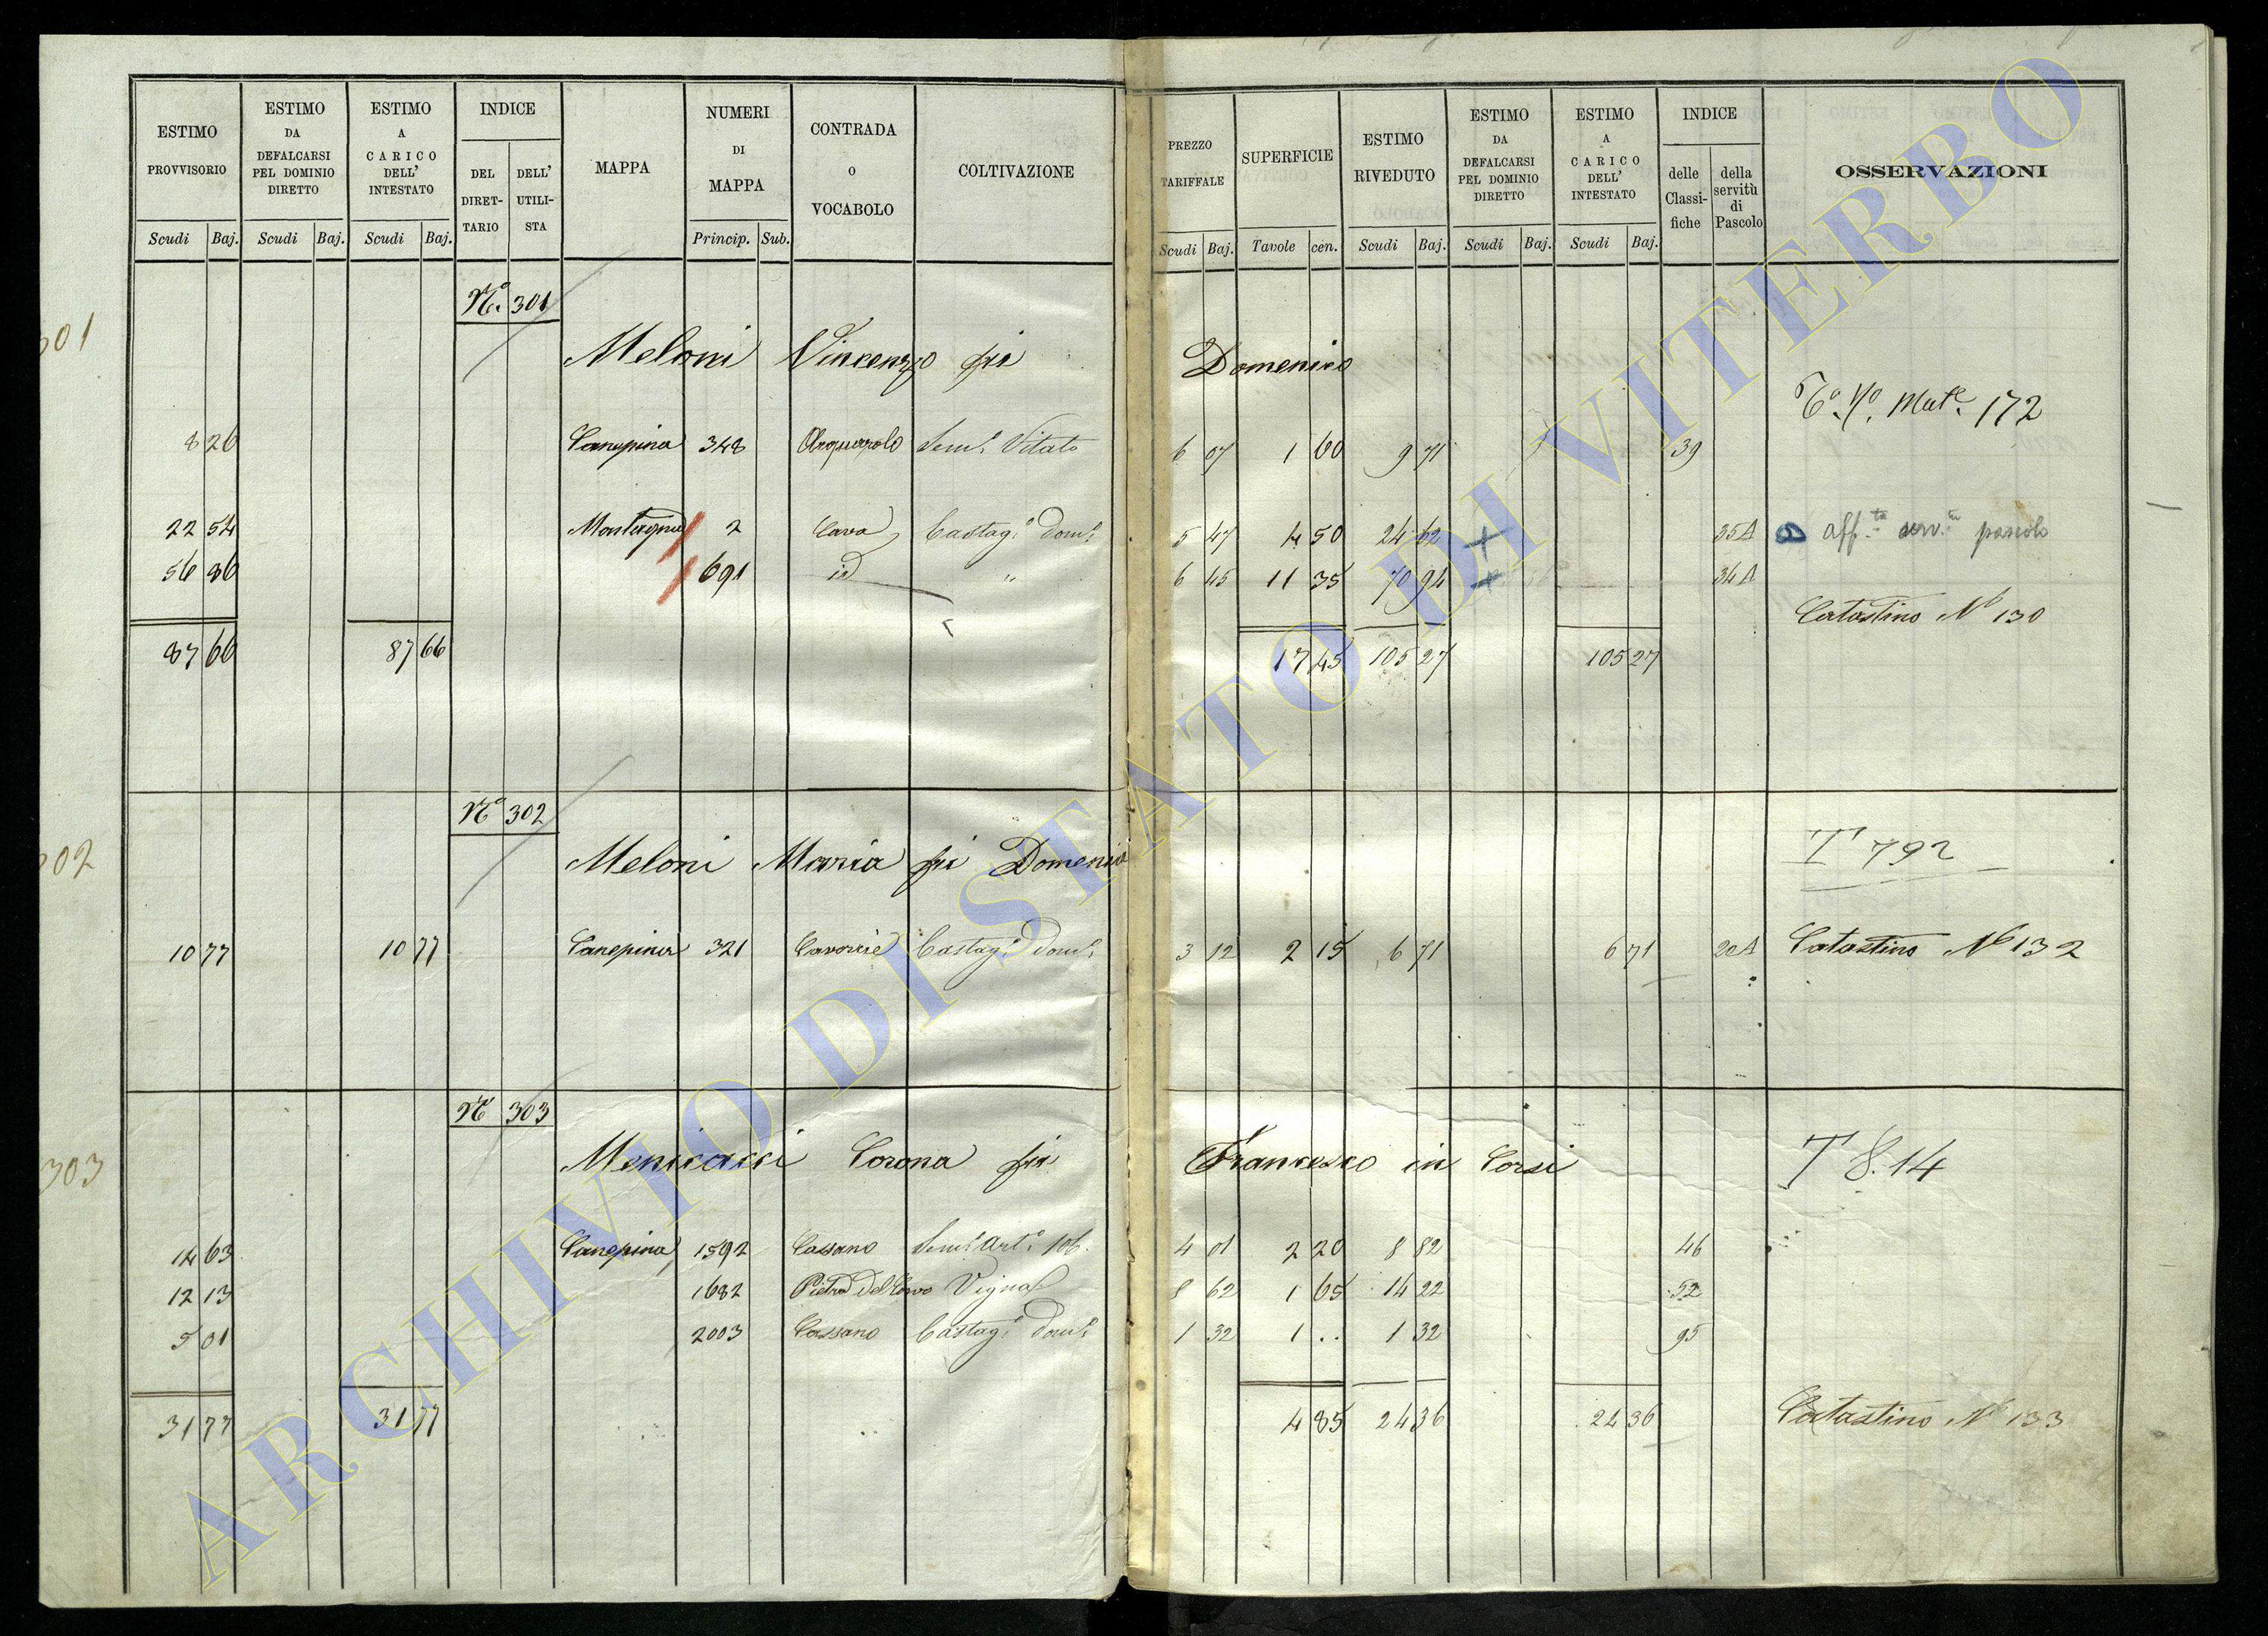 ESTIMO PROVVISORIO | ESTIMO DA DEFALCARSI PEL DOMINIO DIRETTO | ESTIMO A CARICO DELL' INTESTATO | INDICE DEL DIRET-TARIO | DELL' UTILI-STA | MAPPA | NUMERI DI MAPPA | CONTRADA O VOCABOLO | COLTIVAZIONE | PREZZO TARIFFALE | SUPERFICIE | ESTIMO RIVEDUTO | ESTIMO DA DEFALCARSI PEL DOMINIO DIRETTO | ESTIMO A CARICO DELL' INTESTATO | INDICE delle Classi-fiche | della servitù di Pascolo | OSSERVAZIONI
Scudi Baj. | Scudi Baj. | Scudi Baj. | Princip. Sub. | Scudi Baj. | Tavole cen. | Scudi Baj. | Scudi Baj. | Scudi Baj.
301
N.º 301
Meloni Vincenzo fu Domenico
Mat.e 172
8 26 Canepina 348 Sem.o Vitato 6 07 1 60 9 71 39
22 54 2 Cava Castag.o Dom.o 5 47 4 50 24 62 35A aff.ta serv.tu pascolo
56 86 691 id " 6 45 11 35 70 94 34A
Catastino Nº 130
87 66 87 66 17 45 105 27 105 27
302
Nº 302
Meloni Maria fu Domenico
T 792
10 77 10 77 Canepina 321 Castag.o Dom.o 3 12 2 15 6 71 6 71 20A Catastino Nº 132
303
Nº 303
Menicacci Corona fu Francesco in Corsi
T 814
14 63 Canepina 1592 Cassano Sem.o Art.o 106. 4 01 2 20 8 82 46
12 13 1682 Pietra del Corvo Vigna 8 62 1 65 14 22 52
5 01 2003 Cassano Castag.o Dom.o 1 32 1 .. 1 32 95
31 77 31 77 4 85 24 36 24 36 Catastino Nº 133
ARCHIVIO DI STATO DI VITERBO